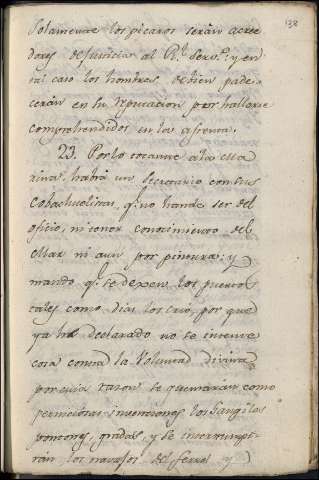 138
Solamente los picaros serán acree
dores de Justicia al Rl. Servo.: y en
tal caso los hombres de bien pade-
cerán en su reputacion por hallarse
comprehendidos en la afrenta.
23. Por lo tocante a la Ma
rina, habrá un Secretario con sus
Cobachuelistas, q.e no han de ser del
oficio, ni tener conocimiento del
Mar ni aun por pintura: y
mando q.e se dexen los puertos
tales como Dios los crió, por que
ya ha declarado no se intente
cosa contra la Voluntad divina,
por cuia razon se quemarán como
perniciosas invenciones los Gangiles
pontones, gradas, y se interrumpi-
rán los navajos del Ferrol y